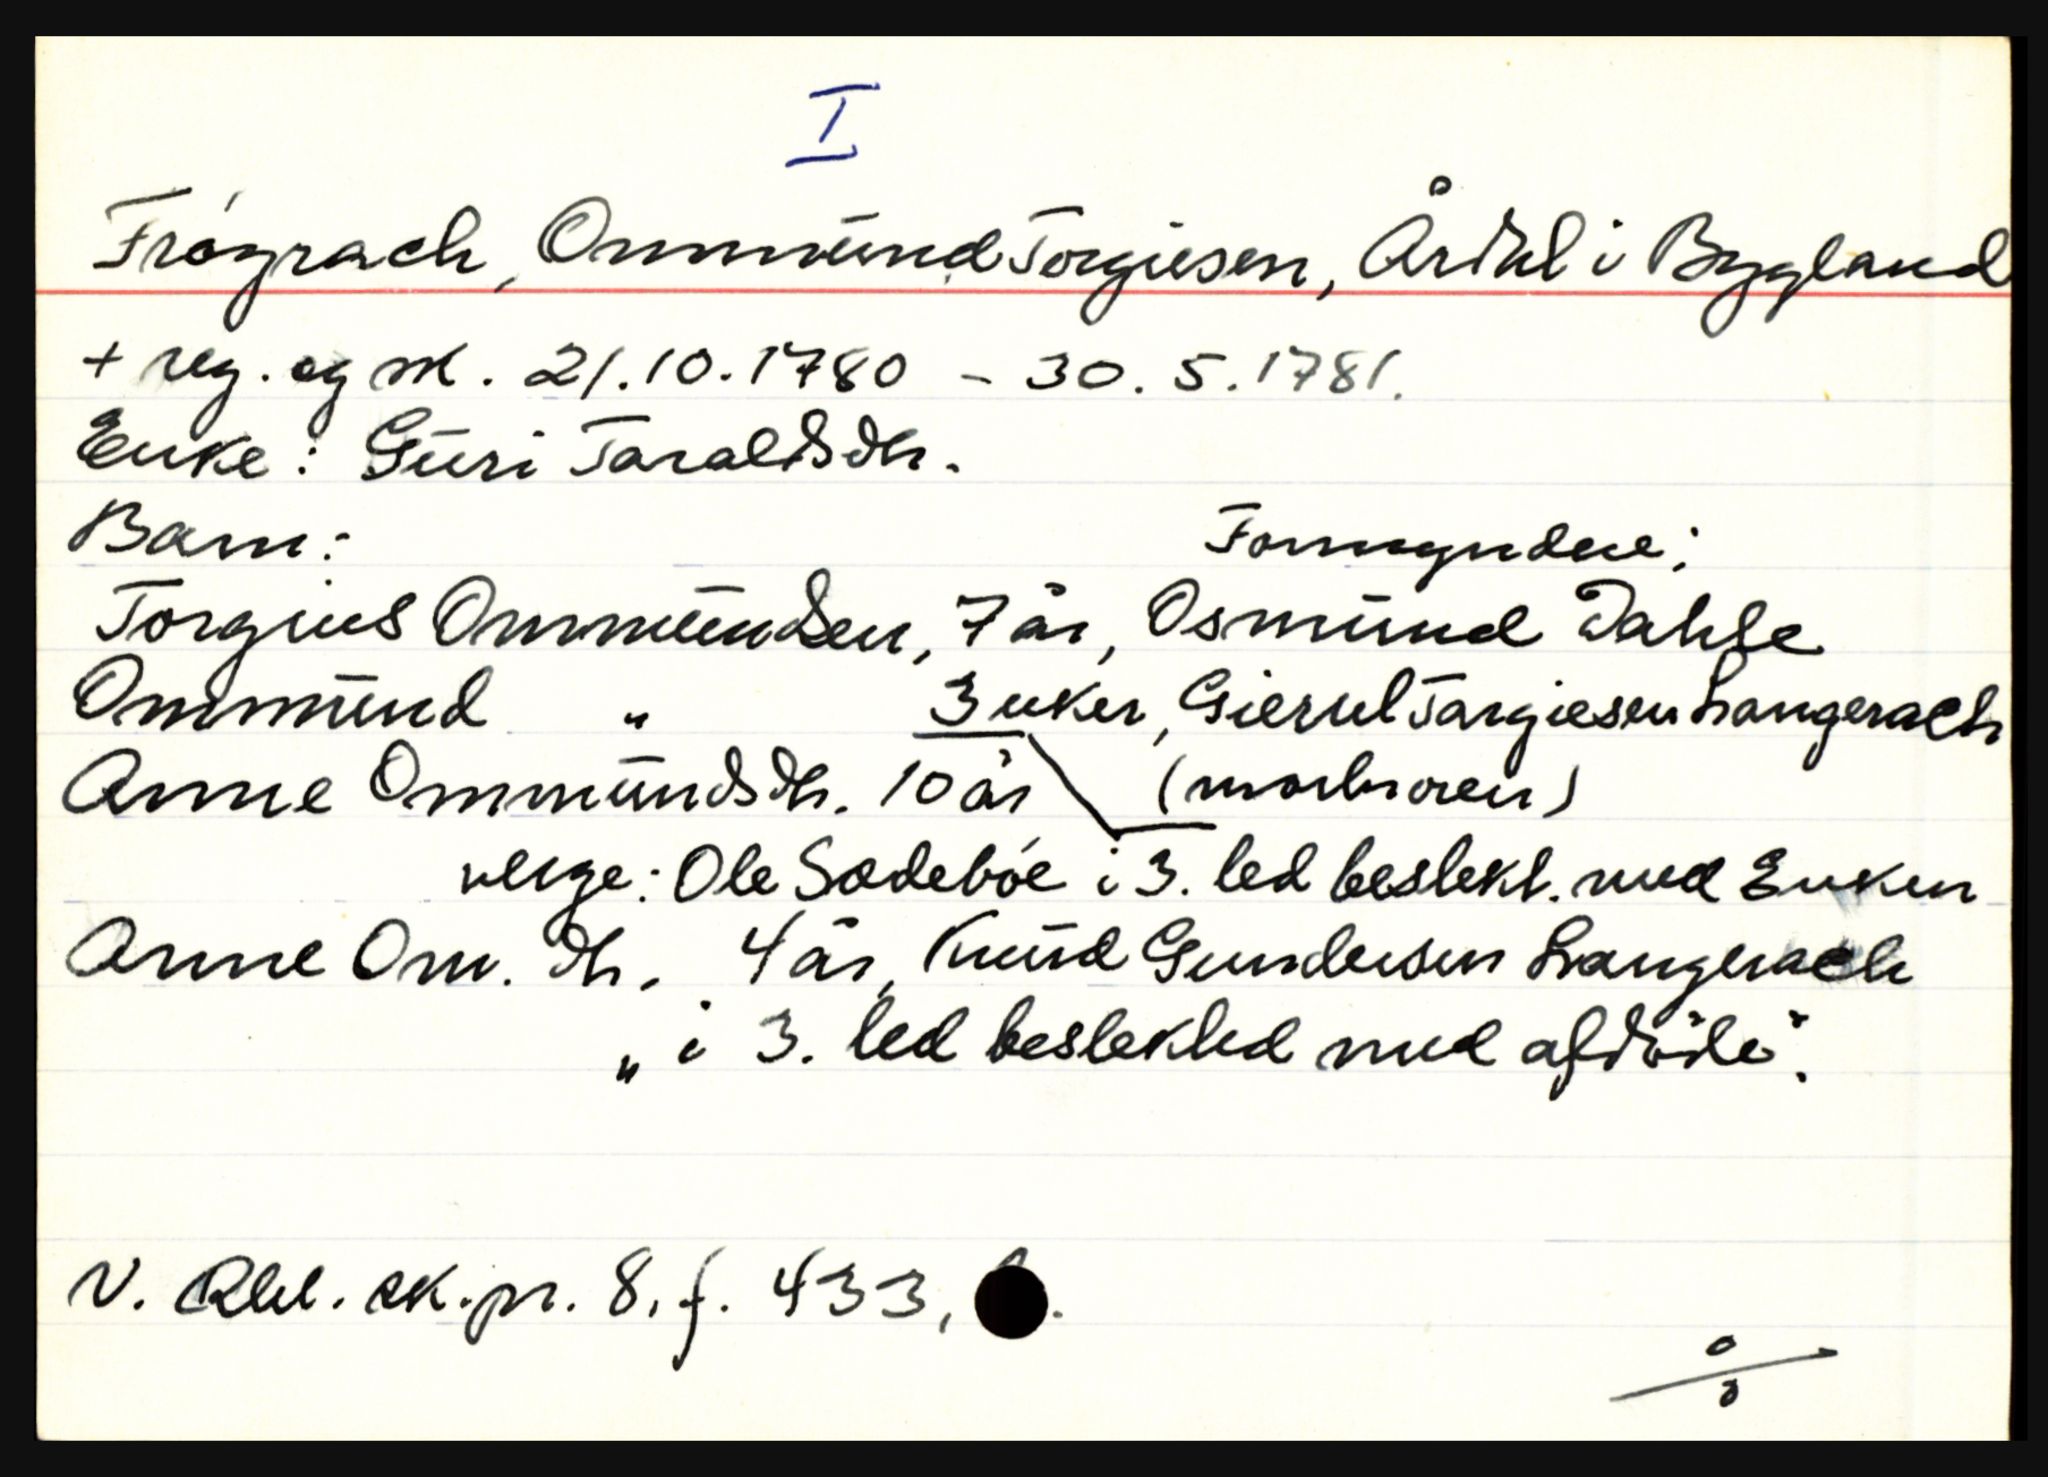 I
Frøyrach, Ommund Torgiesen, Årdal i Bygland
+ reg. og sk. 21.10.1780 - 30.5.1781.
Enke: Guri Taraldsdtr.
Barn: Formyndere:
Torgius Ommundsen, 7 år, Osmund Dahle
Ommund " 3 uker, Gierul Targiesen Langerach
Anne Ommundsdtr. 10 år (morbroren)
verge: Ole Sodebøe i 3. led beslekt. med Enken
Anne Om. dtr. 4 år, Knud Gundersen Langerach
„ i 3. led beslektled med afdøde".
V. Rbd. sk.pr. 8, f. 433,